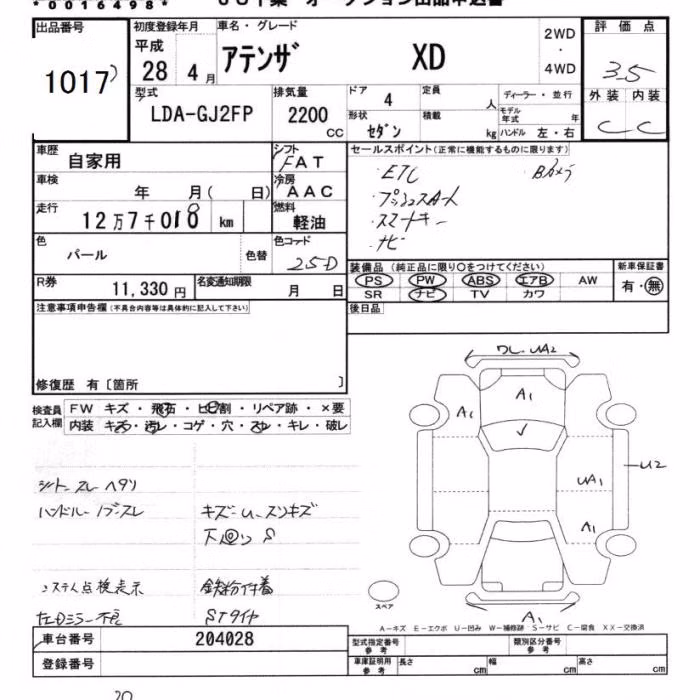 *0016498*
出品番号
1017
初度登録年月
平成
28 4月
車名・グレード
アテンザ XD
2WD
・
4WD
評価点
3.5
外装 内装
C C
型式
LDA-GJ2FP
排気量
2200
CC
ドア
4
定員
人
ディーラー・並行
モデル年式
年
形状
セダン
積載
kg
ハンドル 左・右
車歴
自家用
シフト
FAT
車検
年 月( 日)
冷房
AAC
走行
12万7千018 km
燃料
軽油
色
パール
色替
色コード
25D
R券
11,330円
名変通知期限
月 日
セールスポイント(正常に機能するものに限ります)
・ETC Bカメラ
・プッシュスタート
・スマートキー
・ナビ
装備品 (純正品に限り○をつけてください)
PS PW ABS エアB AW
SR ナビ TV カワ
新車保証書
有・無
後日品
注意事項申告欄(不具合内容等は具体的に記入して下さい)
修復歴 有〔箇所 〕
検査員
記入欄
FW キズ・飛石・ヒビ割・リペア跡・×要
内装 キズ・汚レ・コゲ・穴・スレ・キレ・破レ
シートスレ ヘタリ
ハンドル
キズ・U・スリキズ
下廻リ S
システム点検表示
鉄粉付着
左ドアミラー不良
STタイヤ
ワレ・UA2
A1
A1
U2
UA1
A1
A1
スペア
A-キズ E-エクボ U-凹み W-補修跡 S-サビ C-腐食 XX-交換済
車台番号
204028
登録番号
型式指定番号
参考
類別区分番号
参考
車庫証明用
参考
長さ
cm
幅
cm
高さ
cm
20